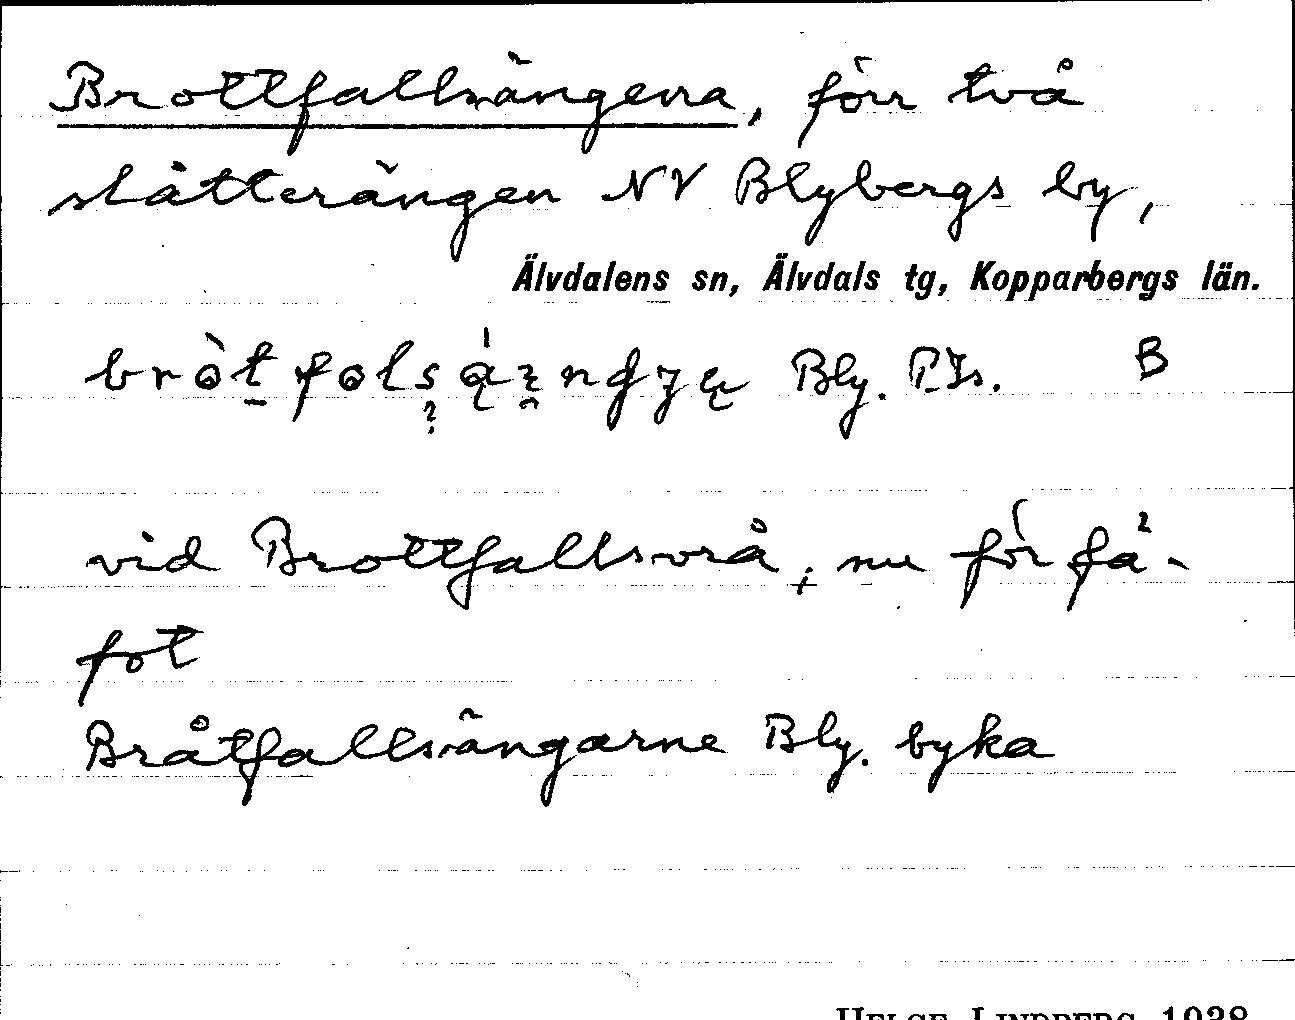 Brottfallsängena, förr två
slåtterängen NV Blybergs by,
Älvdalens sn, Älvdals tg, Kopparbergs län.
Bly. P.Is. B
vid Brottfallsvrå; nu för få-
fot
Bråtfallsängarne Bly. byka
HELGE LINDBERG 1938